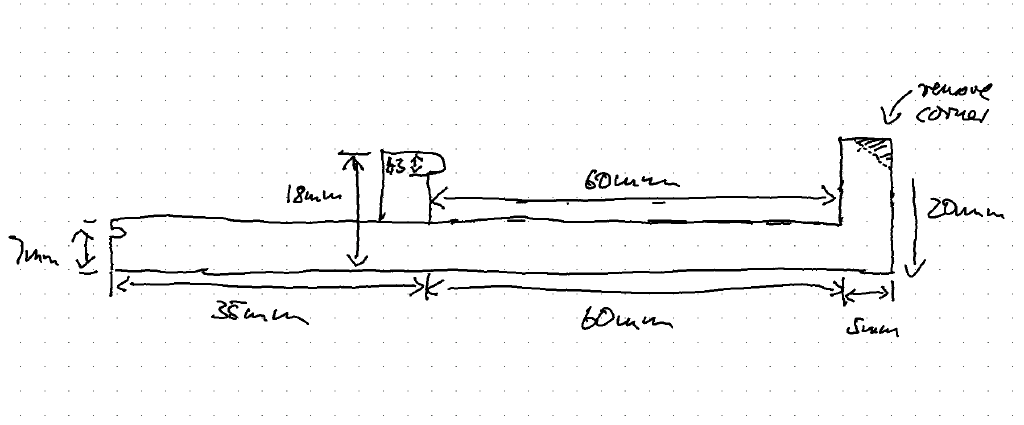 remove
corner
18mm
60mm
20mm
7mm
35mm
60mm
5mm